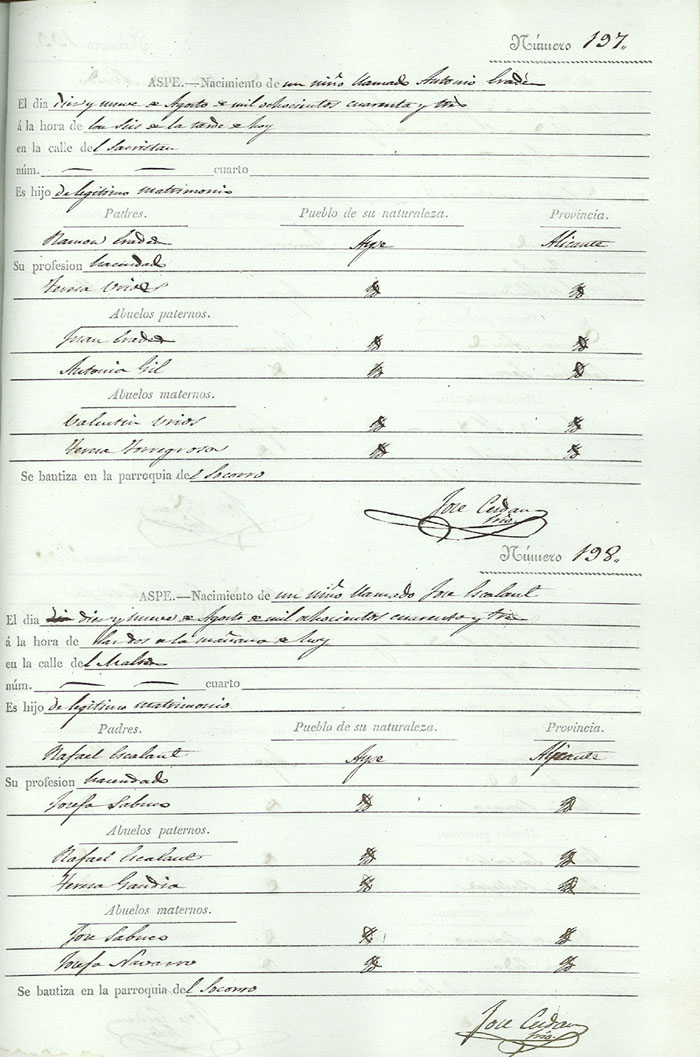 Número 197.
ASPE.—Nacimiento de un niño llamado Antonio
El dia dies y nueve de Agosto de mil ochocientos cuarenta y tres
á la hora de las seis de la tarde de hoy
en la calle del Sacristan
núm. — — cuarto
Es hijo de legitimo matrimonio
Padres. Pueblo de su naturaleza. Provincia.
Ramon Aspe Alicante
Su profesion hacendado
Teresa Urios
Abuelos paternos.
Juan
Antonia Gil
Abuelos maternos.
Valentin Urios
Teresa Torregrosa
Se bautiza en la parroquia del Socorro
Jose Cerdan
Srio.
Número 198.
ASPE.—Nacimiento de un niño llamado Jose Escalant
El dia dies y nueve de Agosto de mil ochocientos cuarenta y tres
á la hora de las dos de la mañana de hoy
en la calle del
núm. — — cuarto
Es hijo de legitimo matrimonio
Padres. Pueblo de su naturaleza. Provincia.
Rafael Escalant Aspe Alicante
Su profesion hacendado
Josefa Sabuco
Abuelos paternos.
Rafael Escalant
Teresa Gandia
Abuelos maternos.
Jose Sabuco
Josefa Navarro
Se bautiza en la parroquia del Socorro
Jose Cerdan
Srio.